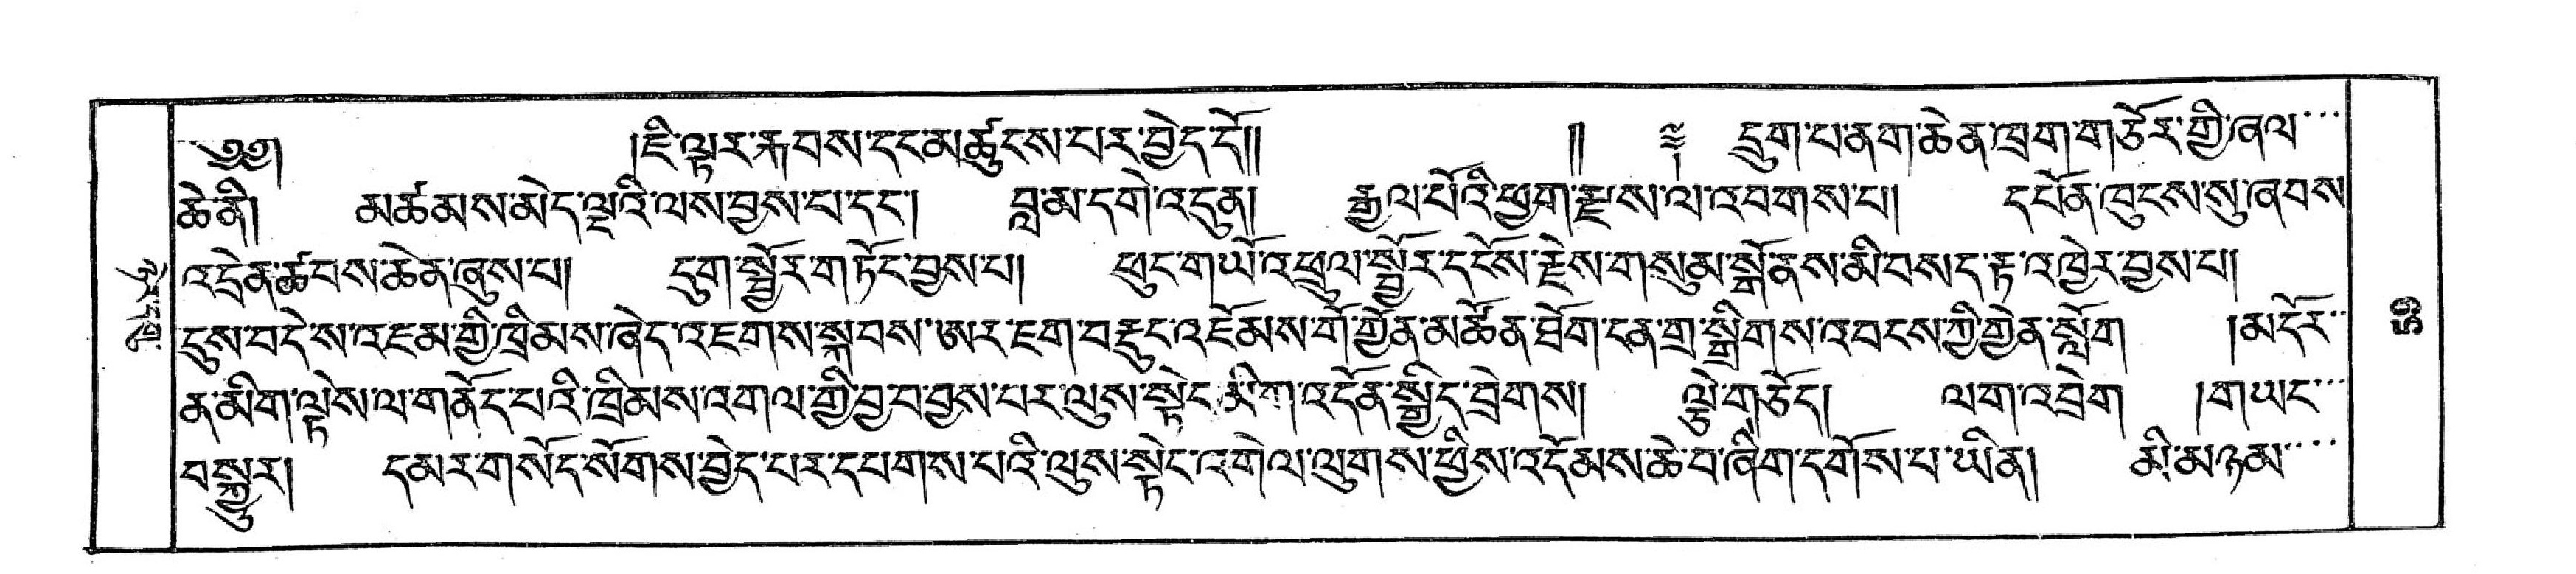 ༄༅། །ཇི་ལྟར་རྐ་བས་དང་མཚུངས་པར་བྱེད་དོ།། །། ༈ དྲུག་པ་ནག་ཆེན་ཁྲག་གཅོར་གྱི་ཞལ་
ཆེ་ནི། མཚམས་མེད་ལྔའི་ལས་བྱས་པ་དང་། བླ་མ་དགེ་འདུན། རྒྱལ་པོའི་ཕྱག་རྫས་ལ་འབགས་པ། དཔོན་ཁུངས་སུ་ཞབས་
འདྲེན་ཚབས་ཆེན་ཞུས་པ། དུག་སྦྱོར་གཏོང་བྱས་པ། ཕྲུང་གཡོ་འཕྲུལ་སྦྱོར་དངོས་རྗེས་གསུམ་སྒོནས་མི་བསད་རྟ་འཁྱེར་བྱས་པ།
དུས་བདེས་འཇམ་གྱི་ཁྲིམས་ཞེད་འཇགས་སྐབས་ཨར་ཇག་བརྡུང་འཇོམས་གོ་གྱོན་མཚོན་ཐོག་ངན་གྲ་སྒྲིགས་འབངས་ཀྱི་གྱེན་སློག །མདོར་
ན་མིག་ལྟེས་ལ་གནོད་པའི་ཁྲིམས་འགལ་གྱི་བྱ་བ་བྱས་པར་ལུས་སྟེང་མིག་འདོན་སྒྱིད་བྲེགས། ལྕེ་གཅོད། ལག་འབྲེག །གཡང་
བསྐྱུར། དམར་གསོད་སོགས་བྱེད་པར་དཔགས་པའི་ལུས་སྟེང་འགེལ་ལུགས་ཕྱིས་འདོམས་ཆེ་བ་ཞིག་དགོས་པ་ཡིན། མི་མཉམ་